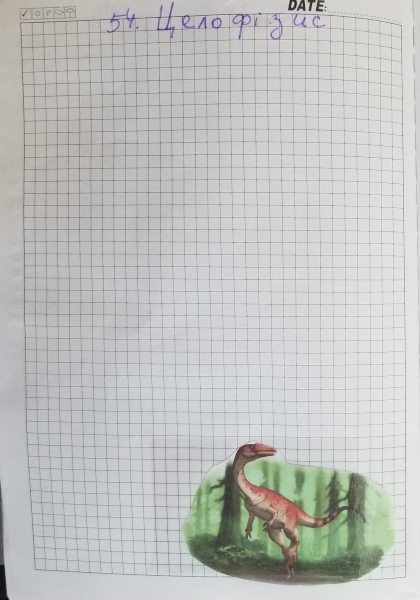 DATE:
54. Целофізис